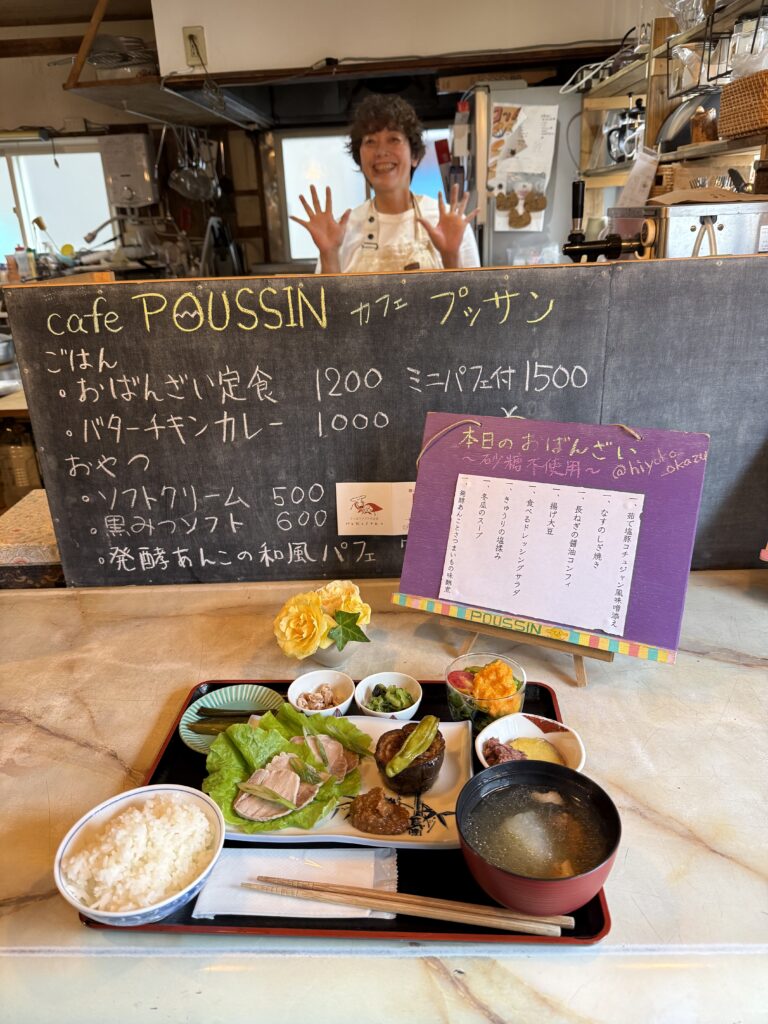 cafe POUSSIN カフェ プッサン
ごはん
。おばんざい定食 1200 ミニパフェ付 1500
。バターチキンカレー 1000
おやつ
。ソフトクリーム 500
。黒みつソフト 600
。発酵あんこの和風パフェ
本日のおばんざい
～砂糖不使用～ @hiyoko_okazu
一、茹で塩豚コチュジャン風味噌添え
一、なすのしぎ焼き
一、長ねぎの醤油コンフィ
一、揚げ大豆
一、食べるドレッシングサラダ
一、きゅうりの塩揉み
一、冬瓜のスープ
一、発酵あんことさつまいもの味醂煮
POUSSIN